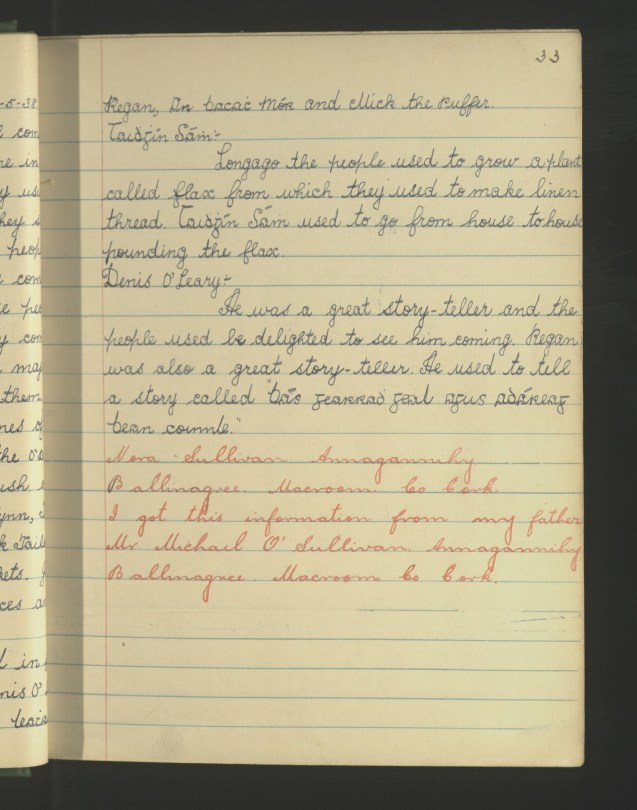 33
Regan, An bacac Mór and Mick the Ruffer.
Taidgín Sám:-
Longago the people used to grow a plant
called flax from which they used to make linen
thread. Taidgín Sám used to go from house to house
pounding the flax.
Denis O'Leary:-
He was a great story-teller and the
people used be delighted to see him coming. Regan
was also a great story-teller. He used to tell
a story called "bás gearrad geal agus
bean
Nora Sullivan Annagannihy
Ballinagree. Macroom. Co Cork.
I got this information from my father
Mr Michael O' Sullivan. Annagannihy
Ballinagree. Macroom Co Cork.